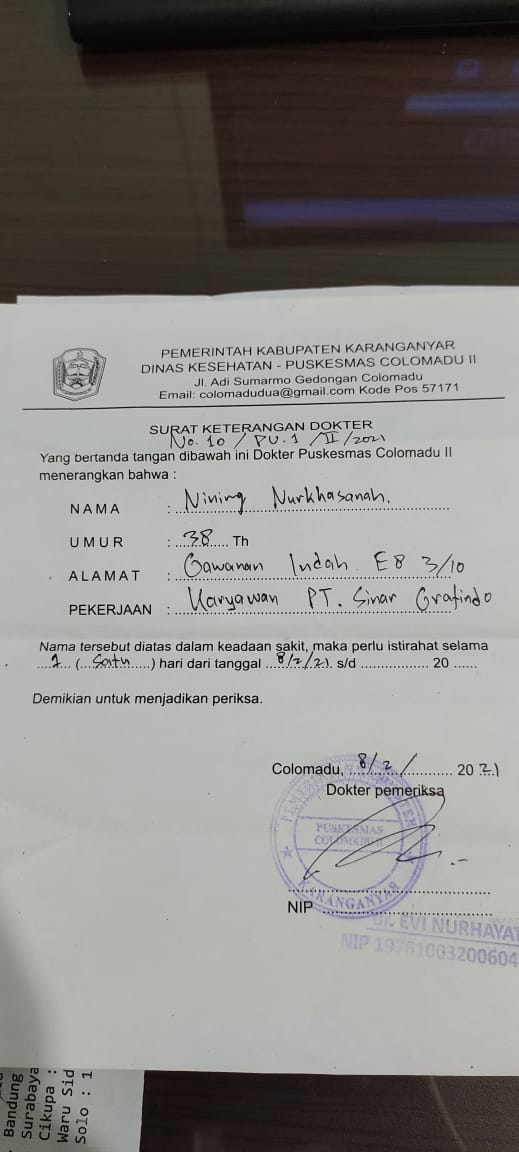 PEMERINTAH KABUPATEN KARANGANYAR
DINAS KESEHATAN - PUSKESMAS COLOMADU II
Jl. Adi Sumarmo Gedongan Colomadu
Email: colomadudua@gmail.com Kode Pos 57171
SURAT KETERANGAN DOKTER
No. 10 / PU.1 / II / 2021
Yang bertanda tangan dibawah ini Dokter Puskesmas Colomadu II
menerangkan bahwa :
NAMA : Nining Nurkhasanah.
UMUR : 38 Th
ALAMAT : Gawanan Indah E8 3/10
PEKERJAAN : Karyawan PT. Sinar Grafindo
Nama tersebut diatas dalam keadaan sakit, maka perlu istirahat selama
1 (Satu) hari dari tanggal 8/2/21. s/d ................. 20 ......
Demikian untuk menjadikan periksa.
Colomadu, 8/2/ 2021
Dokter pemeriksa
PUSKESMAS
COLOMADU II
KARANGANYAR
NIP
dr. EVI NURHAYAT
NIP 19761003200604
Bandung
Surabaya
Cikupa :
Waru Sid
Solo : 1